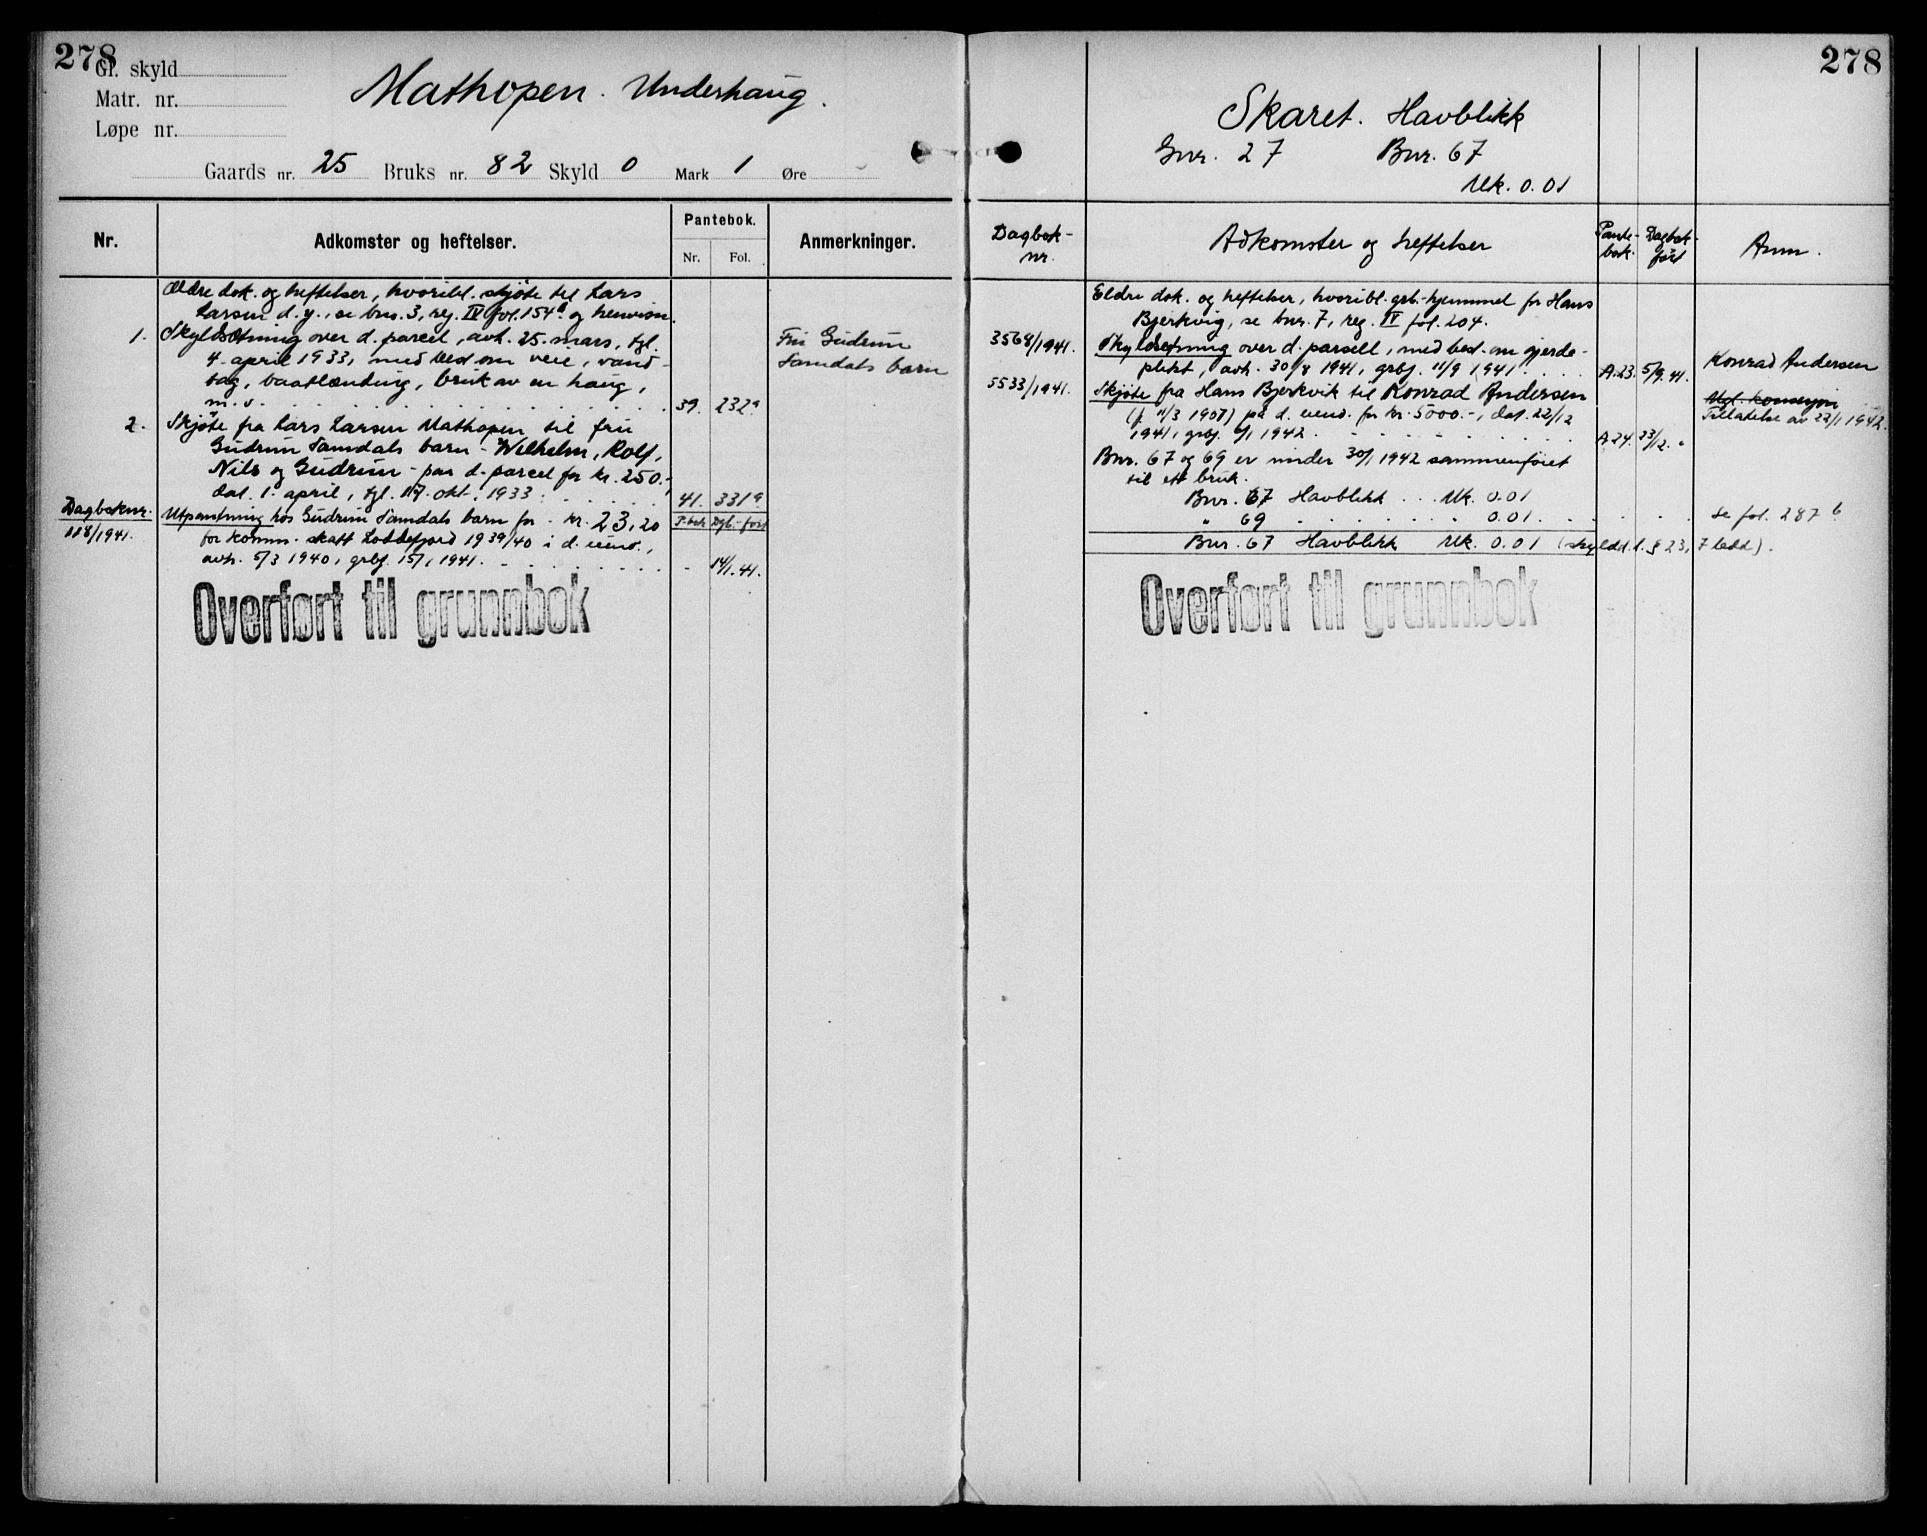 278
Gl. skyld
Matr. nr.
Løpe nr.
Mathopen. Underhaug.
Gaards nr. 25 Bruks nr. 82 Skyld 0 Mark 1 Øre
Nr.
Adkomster og heftelser.
Pantebok.
Nr. Fol.
Anmerkninger.
Ældre dok. og heftelser, hvoribl. skjøte til Lars
Larsen d. y., se bnr. 3, reg. IV fol. 154b og henvisn.
1. Skyldsætning over d. parcel, avh. 25. mars, tgl.
4. april 1933, med best om veie, vand-
tag, baatlænding, bruk av en haug,
m. v. 39. 232a
Fru Gudrun
Samdals barn
2. Skjøte fra Lars Larsen Mathopen til fru
Gudrun Samdals barn - Wilhelm, Rolf,
Nils og Gudrun - paa d. parcel for kr. 250.-,
dat. 1. april, tgl. 17. okt. 1933. 41. 331a
Dagboknr. P.bok Dgb.-ført
118/1941. Utpantning hos Gudrun Samdals barn for kr. 23,20
for komm. skatt Loddefjord 1939/40 i d. eiend.,
avh. 5/3 1940, grbf. 15/1 1941. - 14/1.41.
Overført til grunnbok
278
Skaret. Havblikk
Gnr. 27 Bnr. 67
Mk. 0.01
Dagbok-
nr.
Adkomster og heftelser
Pante-
bok.
Dagbok-
ført
Anm.
Eldre dok. og heftelser, hvoribl. grb.-hjemmel for Hans
Bjerkvig, se bnr. 7, reg. IV fol. 204.
3568/1941. Skyldsetning over d. parsell, med best. om gjerde-
plikt, avh. 30/8 1941, grbf. 11/9 1941 A.23. 5/9.41.
Konrad Andersen
5533/1941. Skjøte fra Hans Bjerkvik til Konrad Andersen
(f. 11/3 1907) på d. eiend. for kr. 5000.-, dat. 22/12
1941, grbf. 6/1 1942 A.24. 23/12. "
Mgl. konsesjon
Tillatelse av 22/1 1942.
Bnr. 67 og 69 er under 30/1 1942 sammenføiet
til ett bruk:
Bnr. 67 Havblikk Mk. 0.01
" 69 0.01. Se fol. 287b
Bnr. 67 Havblikk Mk. 0.01 (skyldd.l. § 23, 7 ledd).
Overført til grunnbok